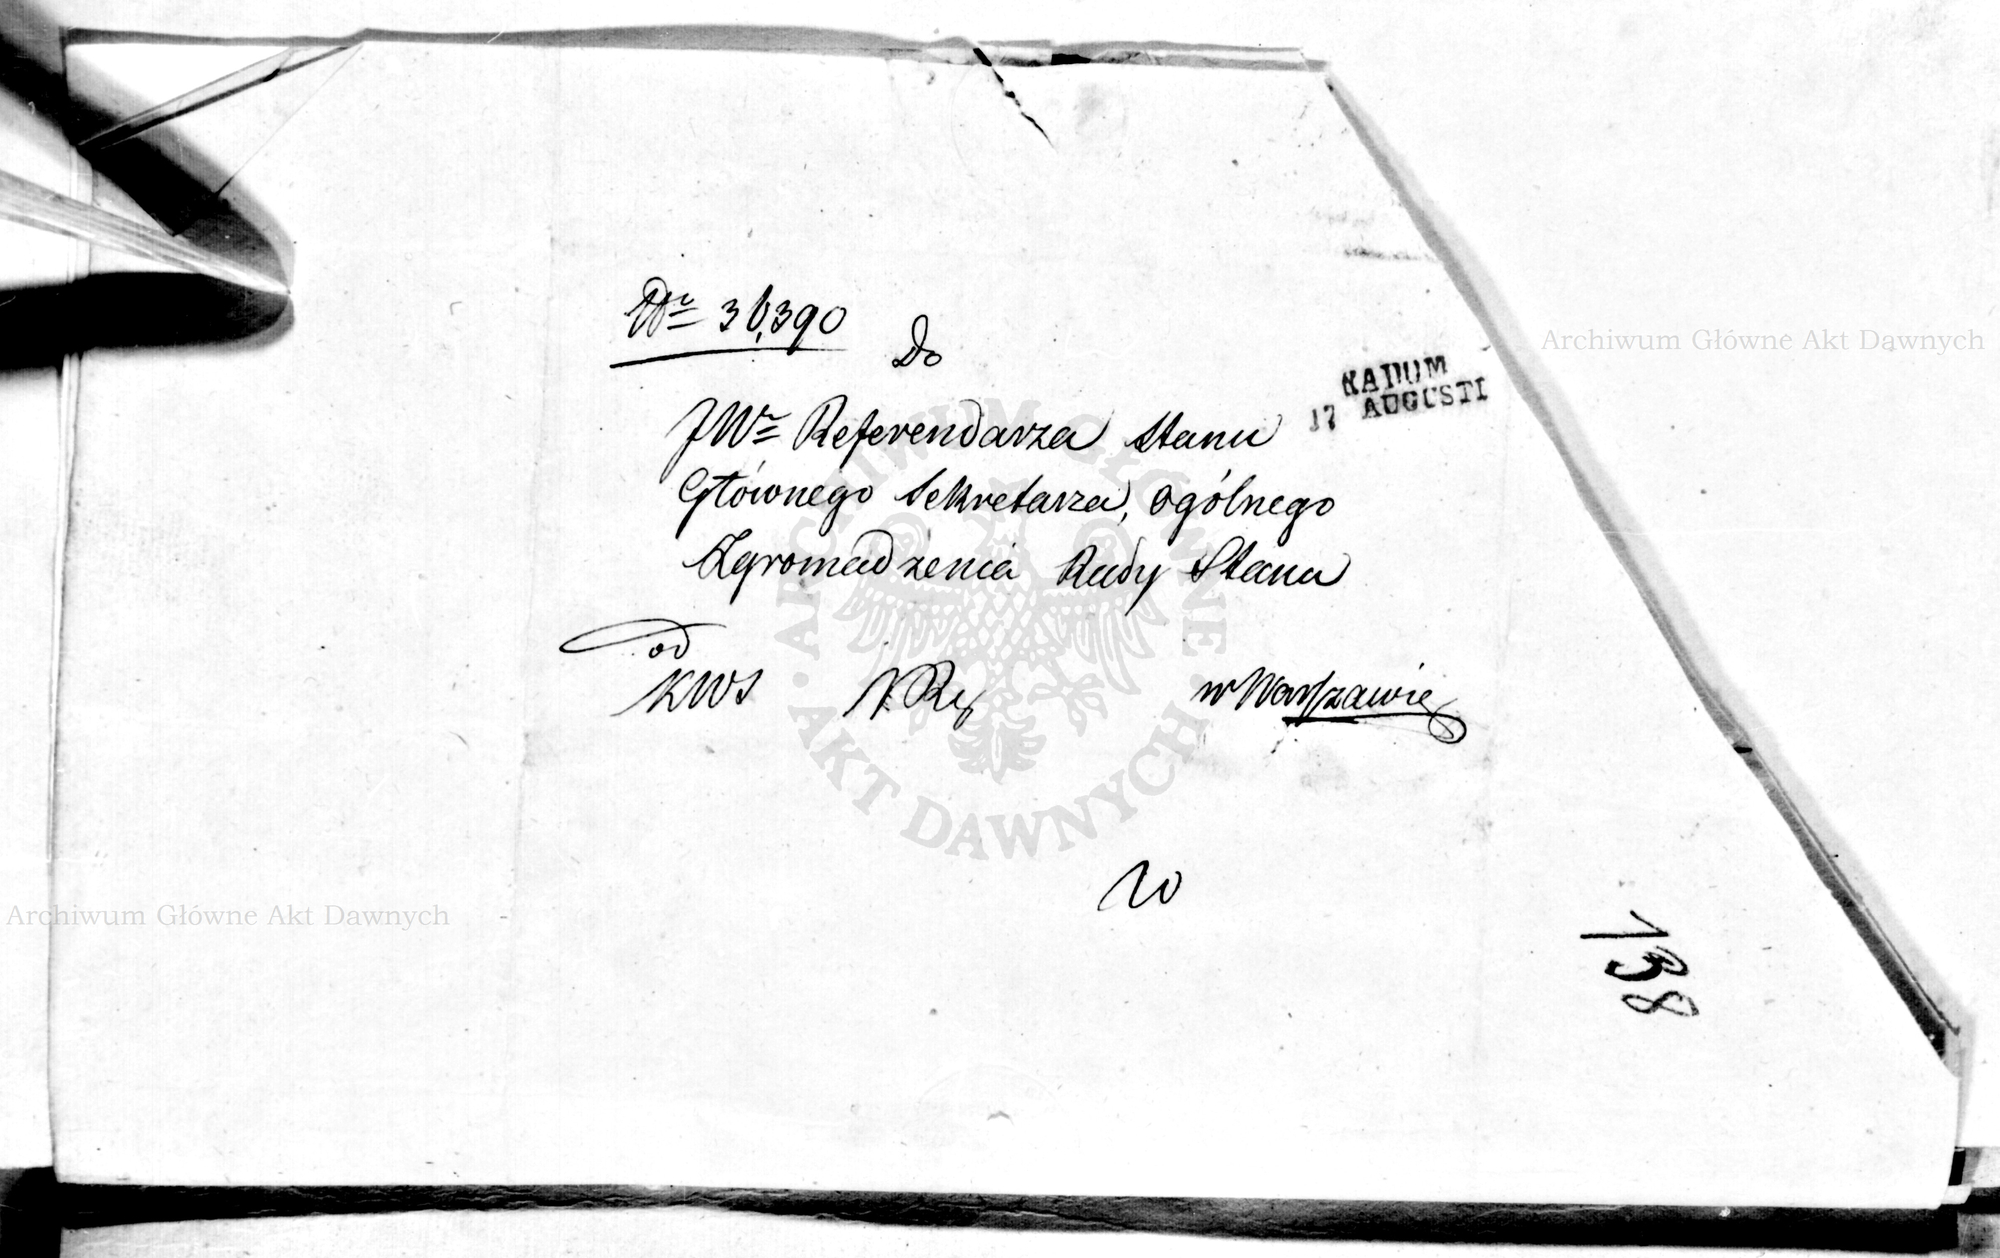 Nr 36,390
Do
RADOM
17 AUGUSTI
JWo Referendarza Stanu
Głównego Sekretarza, Ogólnego
Zgromadzenia Rady Stanu
od
KWS
w Warszawie
138
Archiwum Główne Akt Dawnych
Archiwum Główne Akt Dawnych
ARCHIWUM GŁÓWNE
AKT DAWNYCH